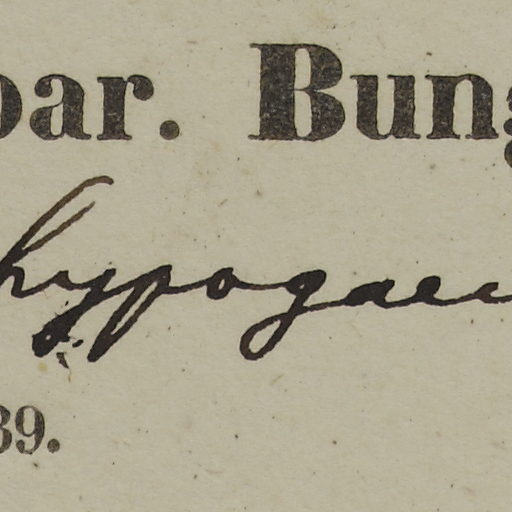 par. Bung
hypogaei
39.